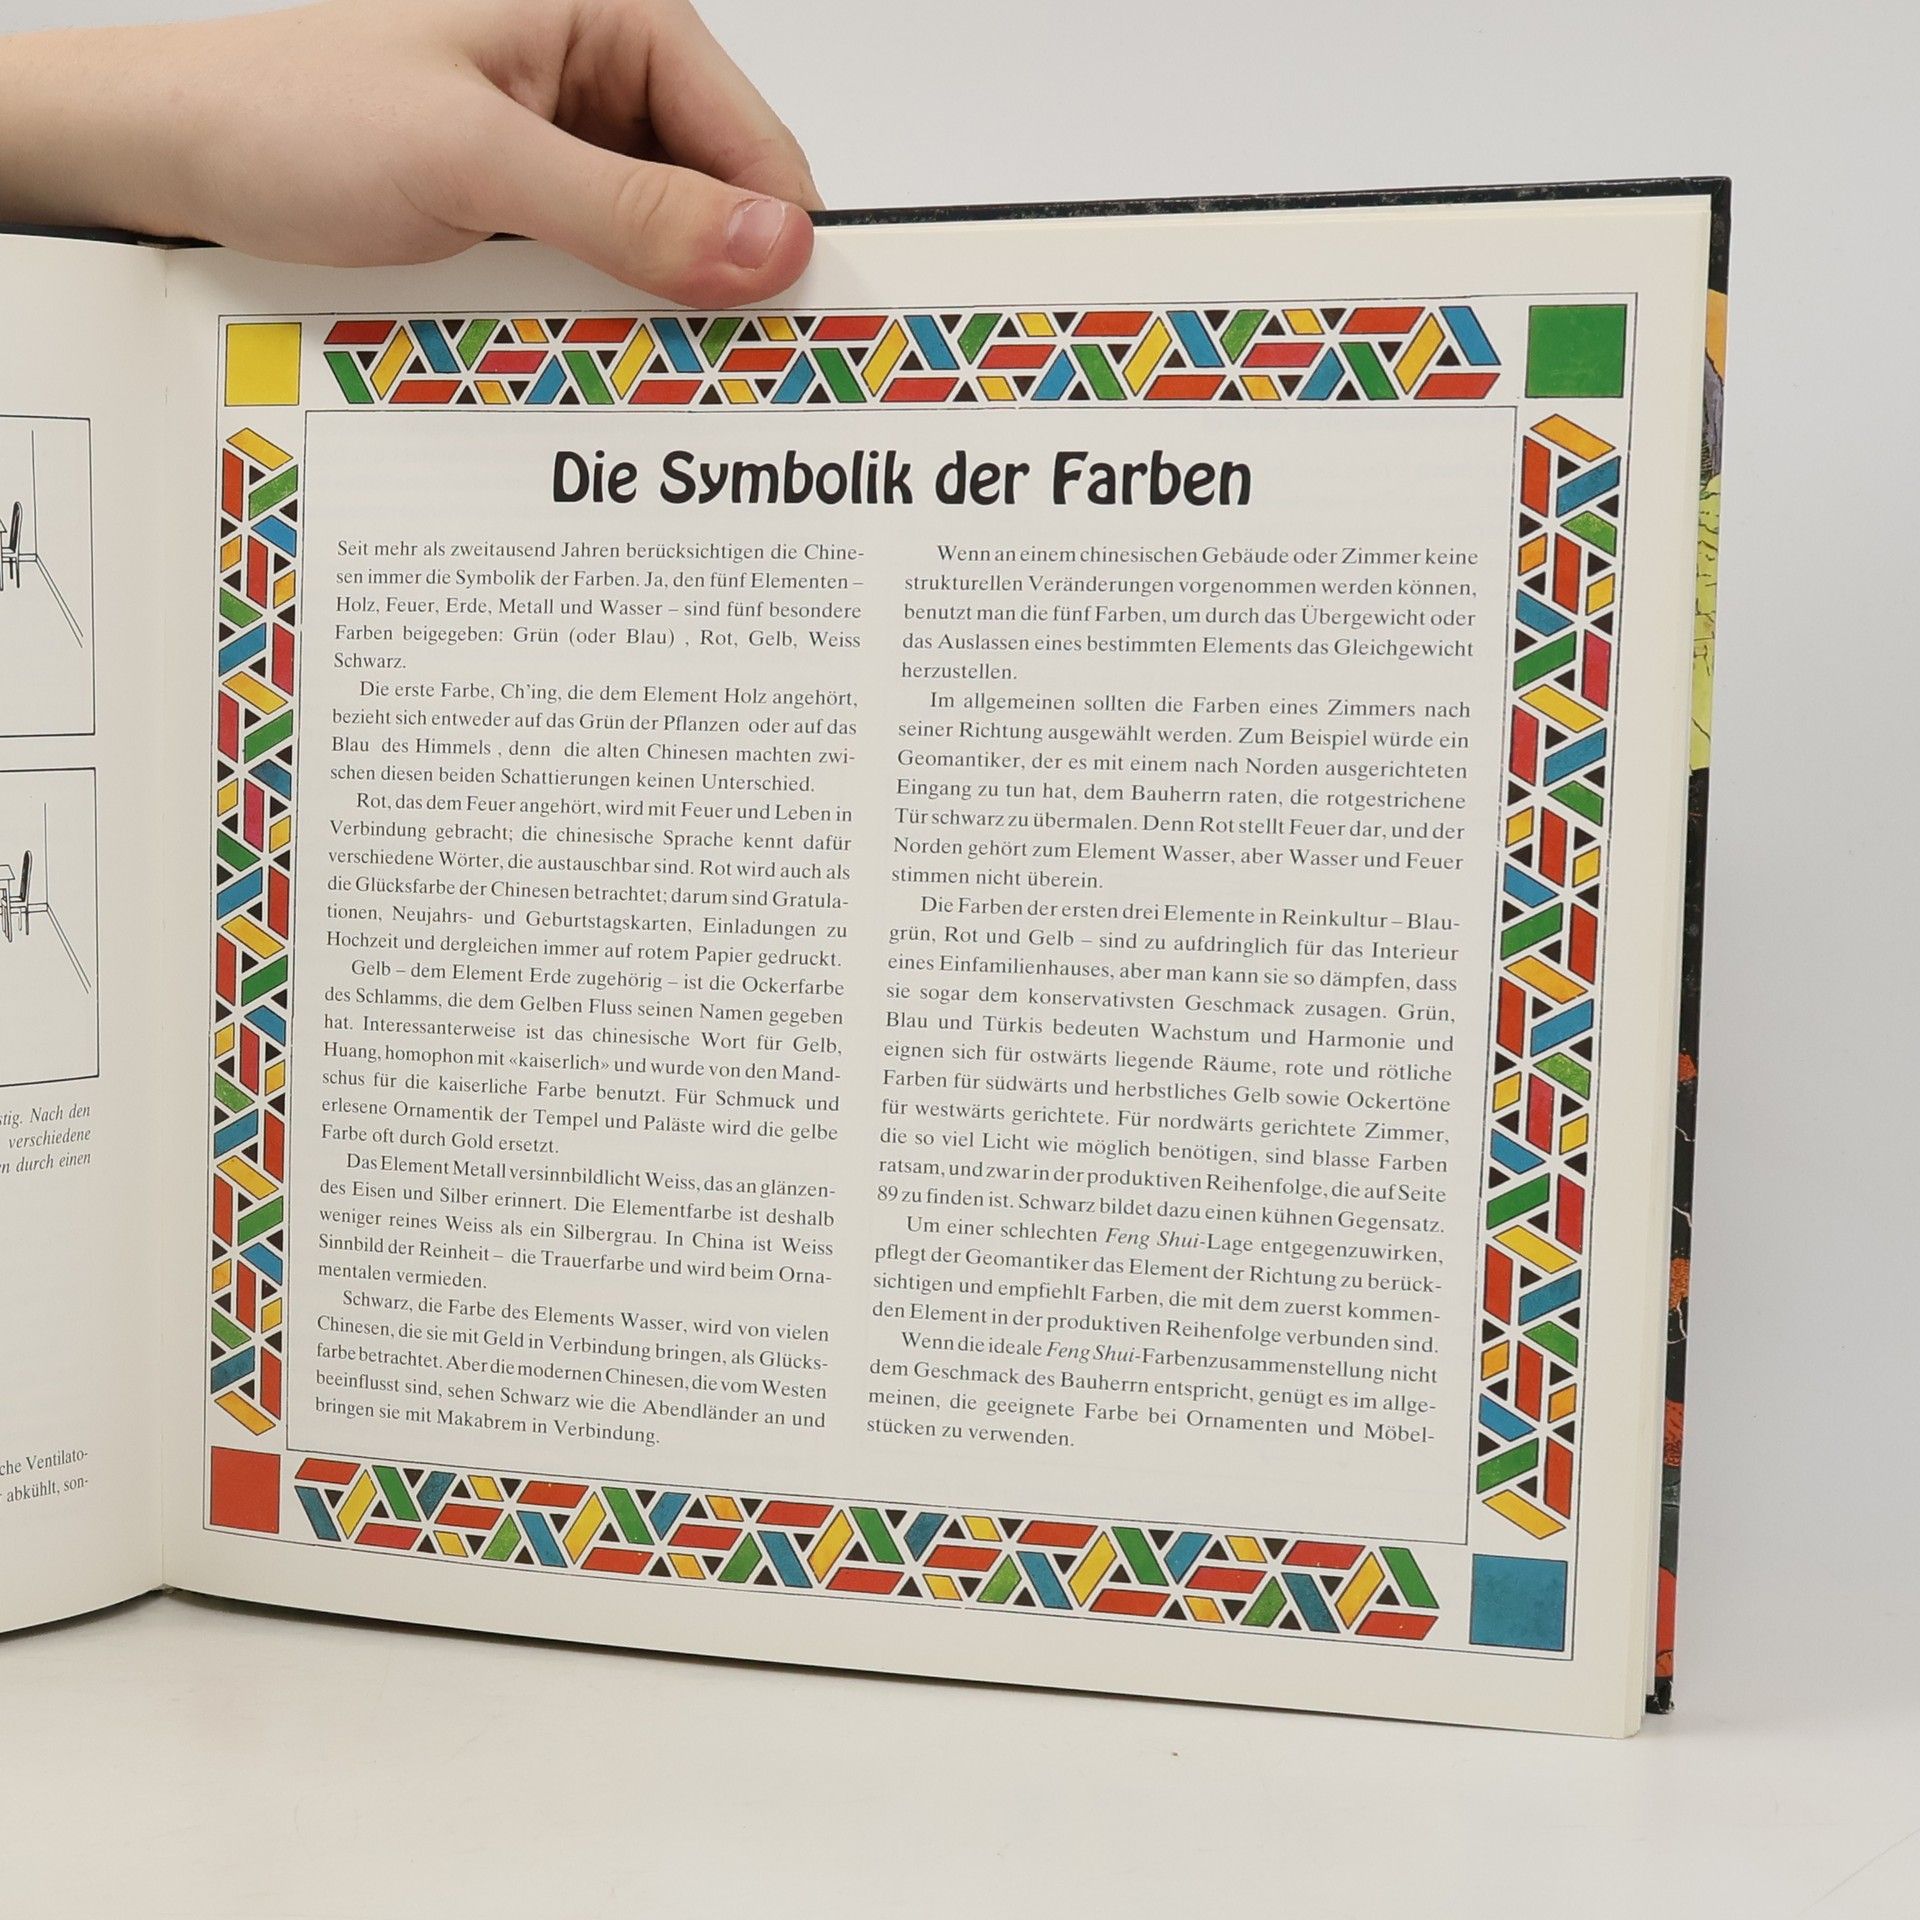 stig. Nach den
verschiedene
n durch einen
che Ventilato-
abkühlt, son-
Die Symbolik der Farben
Seit mehr als zweitausend Jahren berücksichtigen die Chine-
sen immer die Symbolik der Farben. Ja, den fünf Elementen –
Holz, Feuer, Erde, Metall und Wasser – sind fünf besondere
Farben beigegeben: Grün (oder Blau) , Rot, Gelb, Weiss
Schwarz.
Die erste Farbe, Ch'ing, die dem Element Holz angehört,
bezieht sich entweder auf das Grün der Pflanzen oder auf das
Blau des Himmels , denn die alten Chinesen machten zwi-
schen diesen beiden Schattierungen keinen Unterschied.
Rot, das dem Feuer angehört, wird mit Feuer und Leben in
Verbindung gebracht; die chinesische Sprache kennt dafür
verschiedene Wörter, die austauschbar sind. Rot wird auch als
die Glücksfarbe der Chinesen betrachtet; darum sind Gratula-
tionen, Neujahrs- und Geburtstagskarten, Einladungen zu
Hochzeit und dergleichen immer auf rotem Papier gedruckt.
Gelb – dem Element Erde zugehörig – ist die Ockerfarbe
des Schlamms, die dem Gelben Fluss seinen Namen gegeben
hat. Interessanterweise ist das chinesische Wort für Gelb,
Huang, homophon mit «kaiserlich» und wurde von den Mand-
schus für die kaiserliche Farbe benutzt. Für Schmuck und
erlesene Ornamentik der Tempel und Paläste wird die gelbe
Farbe oft durch Gold ersetzt.
Das Element Metall versinnbildlicht Weiss, das an glänzen-
des Eisen und Silber erinnert. Die Elementfarbe ist deshalb
weniger reines Weiss als ein Silbergrau. In China ist Weiss
Sinnbild der Reinheit – die Trauerfarbe und wird beim Orna-
mentalen vermieden.
Schwarz, die Farbe des Elements Wasser, wird von vielen
Chinesen, die sie mit Geld in Verbindung bringen, als Glücks-
farbe betrachtet. Aber die modernen Chinesen, die vom Westen
beeinflusst sind, sehen Schwarz wie die Abendländer an und
bringen sie mit Makabrem in Verbindung.
Wenn an einem chinesischen Gebäude oder Zimmer keine
strukturellen Veränderungen vorgenommen werden können,
benutzt man die fünf Farben, um durch das Übergewicht oder
das Auslassen eines bestimmten Elements das Gleichgewicht
herzustellen.
Im allgemeinen sollten die Farben eines Zimmers nach
seiner Richtung ausgewählt werden. Zum Beispiel würde ein
Geomantiker, der es mit einem nach Norden ausgerichteten
Eingang zu tun hat, dem Bauherrn raten, die rotgestrichene
Tür schwarz zu übermalen. Denn Rot stellt Feuer dar, und der
Norden gehört zum Element Wasser, aber Wasser und Feuer
stimmen nicht überein.
Die Farben der ersten drei Elemente in Reinkultur – Blau-
grün, Rot und Gelb – sind zu aufdringlich für das Interieur
eines Einfamilienhauses, aber man kann sie so dämpfen, dass
sie sogar dem konservativsten Geschmack zusagen. Grün,
Blau und Türkis bedeuten Wachstum und Harmonie und
eignen sich für ostwärts liegende Räume, rote und rötliche
Farben für südwärts und herbstliches Gelb sowie Ockertöne
für westwärts gerichtete. Für nordwärts gerichtete Zimmer,
die so viel Licht wie möglich benötigen, sind blasse Farben
ratsam, und zwar in der produktiven Reihenfolge, die auf Seite
89 zu finden ist. Schwarz bildet dazu einen kühnen Gegensatz.
Um einer schlechten Feng Shui-Lage entgegenzuwirken,
pflegt der Geomantiker das Element der Richtung zu berück-
sichtigen und empfiehlt Farben, die mit dem zuerst kommen-
den Element in der produktiven Reihenfolge verbunden sind.
Wenn die ideale Feng Shui-Farbenzusammenstellung nicht
dem Geschmack des Bauherrn entspricht, genügt es im allge-
meinen, die geeignete Farbe bei Ornamenten und Möbel-
stücken zu verwenden.